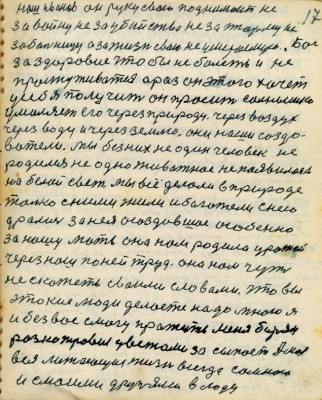 17
наш иванов он руку свою поднимает не
за войну не за убийство не за тюрму не
за больницу а за жизнь свою не умирающую. Бог
за здоровие что бы не болеть и не
простуживатся а раз он этого хочет
у себя получит он просит солнышко
умиляет его через природу. через воздух
через воду и через землю, они наши создо-
ватели. мы без них не один человек не
родился не одно животное не появилось
на белой свет. мы всё делали в природе
только с ними жили и богатели с него
дрались за нея создавшое особенно
за нашу мать она нам родила урожай
через нашу по ней труд. она нам чуть
не скажеть своими словами, что вы
это кие люди делаете надо мною я
и без вас смогу прожить меня бурян
разнотровия цветами за сыпеть
вся летающия жизнь всегда со мною
и с моими друзями в ладу